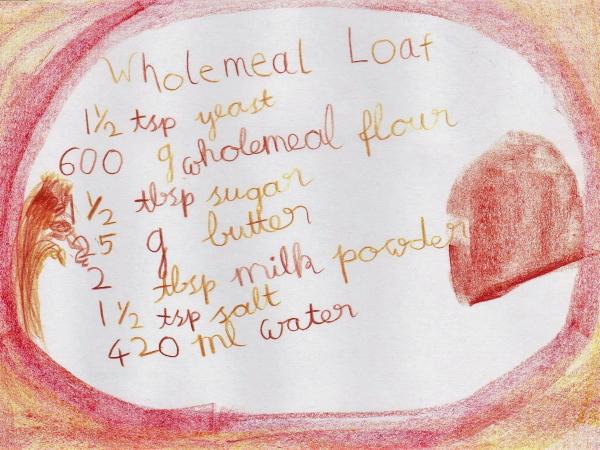 Wholemeal Loaf
1½ tsp yeast
600 g wholemeal flour
1½ tbsp sugar
25 g butter
2 tbsp milk powder
1½ tsp salt
420 ml water